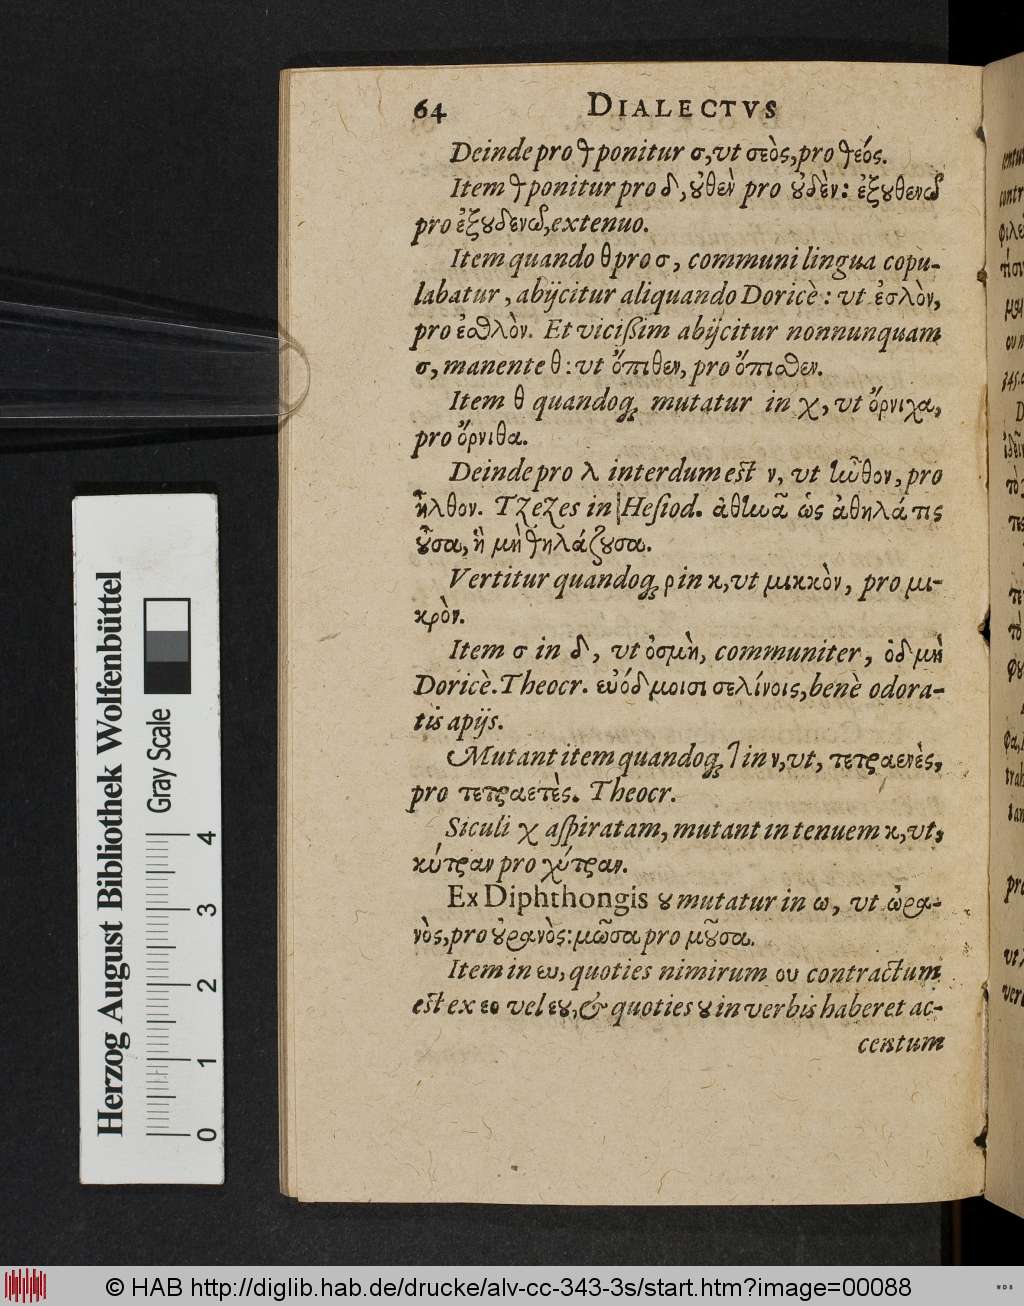 64 DIALECTVS
Deinde pro θ ponitur σ, vt σεὸς, pro θεός.
Item θ ponitur pro δ, ȣ̓θεὶν pro ȣ̓δὲν: ἐξȣθενῶ
pro ἐξȣδενῶ, extenuo.
Item quando θ pro σ, communi lingua copu-
labatur, abijcitur aliquando Doricè: vt ἐσλὸν,
pro ἐσθλὸν. Et vicißim abijcitur nonnunquam
σ, manente θ: vt ὄπιθεν, pro ὄπισθεν.
Item θ quandoq; mutatur in χ, vt ὄρνιχα,
pro ὄρνιθα.
Deinde pro λ interdum est ν, vt ἦνθον, pro
ἦλθον. Tzezes in Hesiod. ἀθηνᾶ ὡς ἀθηλά τις
ȣ̓͂σα, ἢ μὴ θηλάζȣσα.
Vertitur quandoq; ρ in κ, vt μικκὸν, pro μι-
κρὸν.
Item σ in δ, vt ὀσμὴ, communiter, ὀδμὴ
Doricè. Theocr. εὐόδμοισι σελίνοις, benè odora-
tis apijs.
Mutant item quandoq; τ in ν, vt, τετραενὲς,
pro τετραετὲς. Theocr.
Siculi χ aspiratam, mutant in tenuem κ, vt,
κύτραν pro χύτραν.
Ex Diphthongis ȣ mutatur in ω, vt ὠρα-
νὸς, pro ȣ̓ρανὸς: μῶσα pro μȣ͂σα.
Item in ευ, quoties nimirum ου contractum
est ex εο vel εȣ, & quoties ȣ in verbis haberet ac-
centum
Herzog August Bibliothek Wolfenbüttel
Gray Scale
0 1 2 3 4
© HAB http://diglib.hab.de/drucke/alv-cc-343-3s/start.htm?image=00088